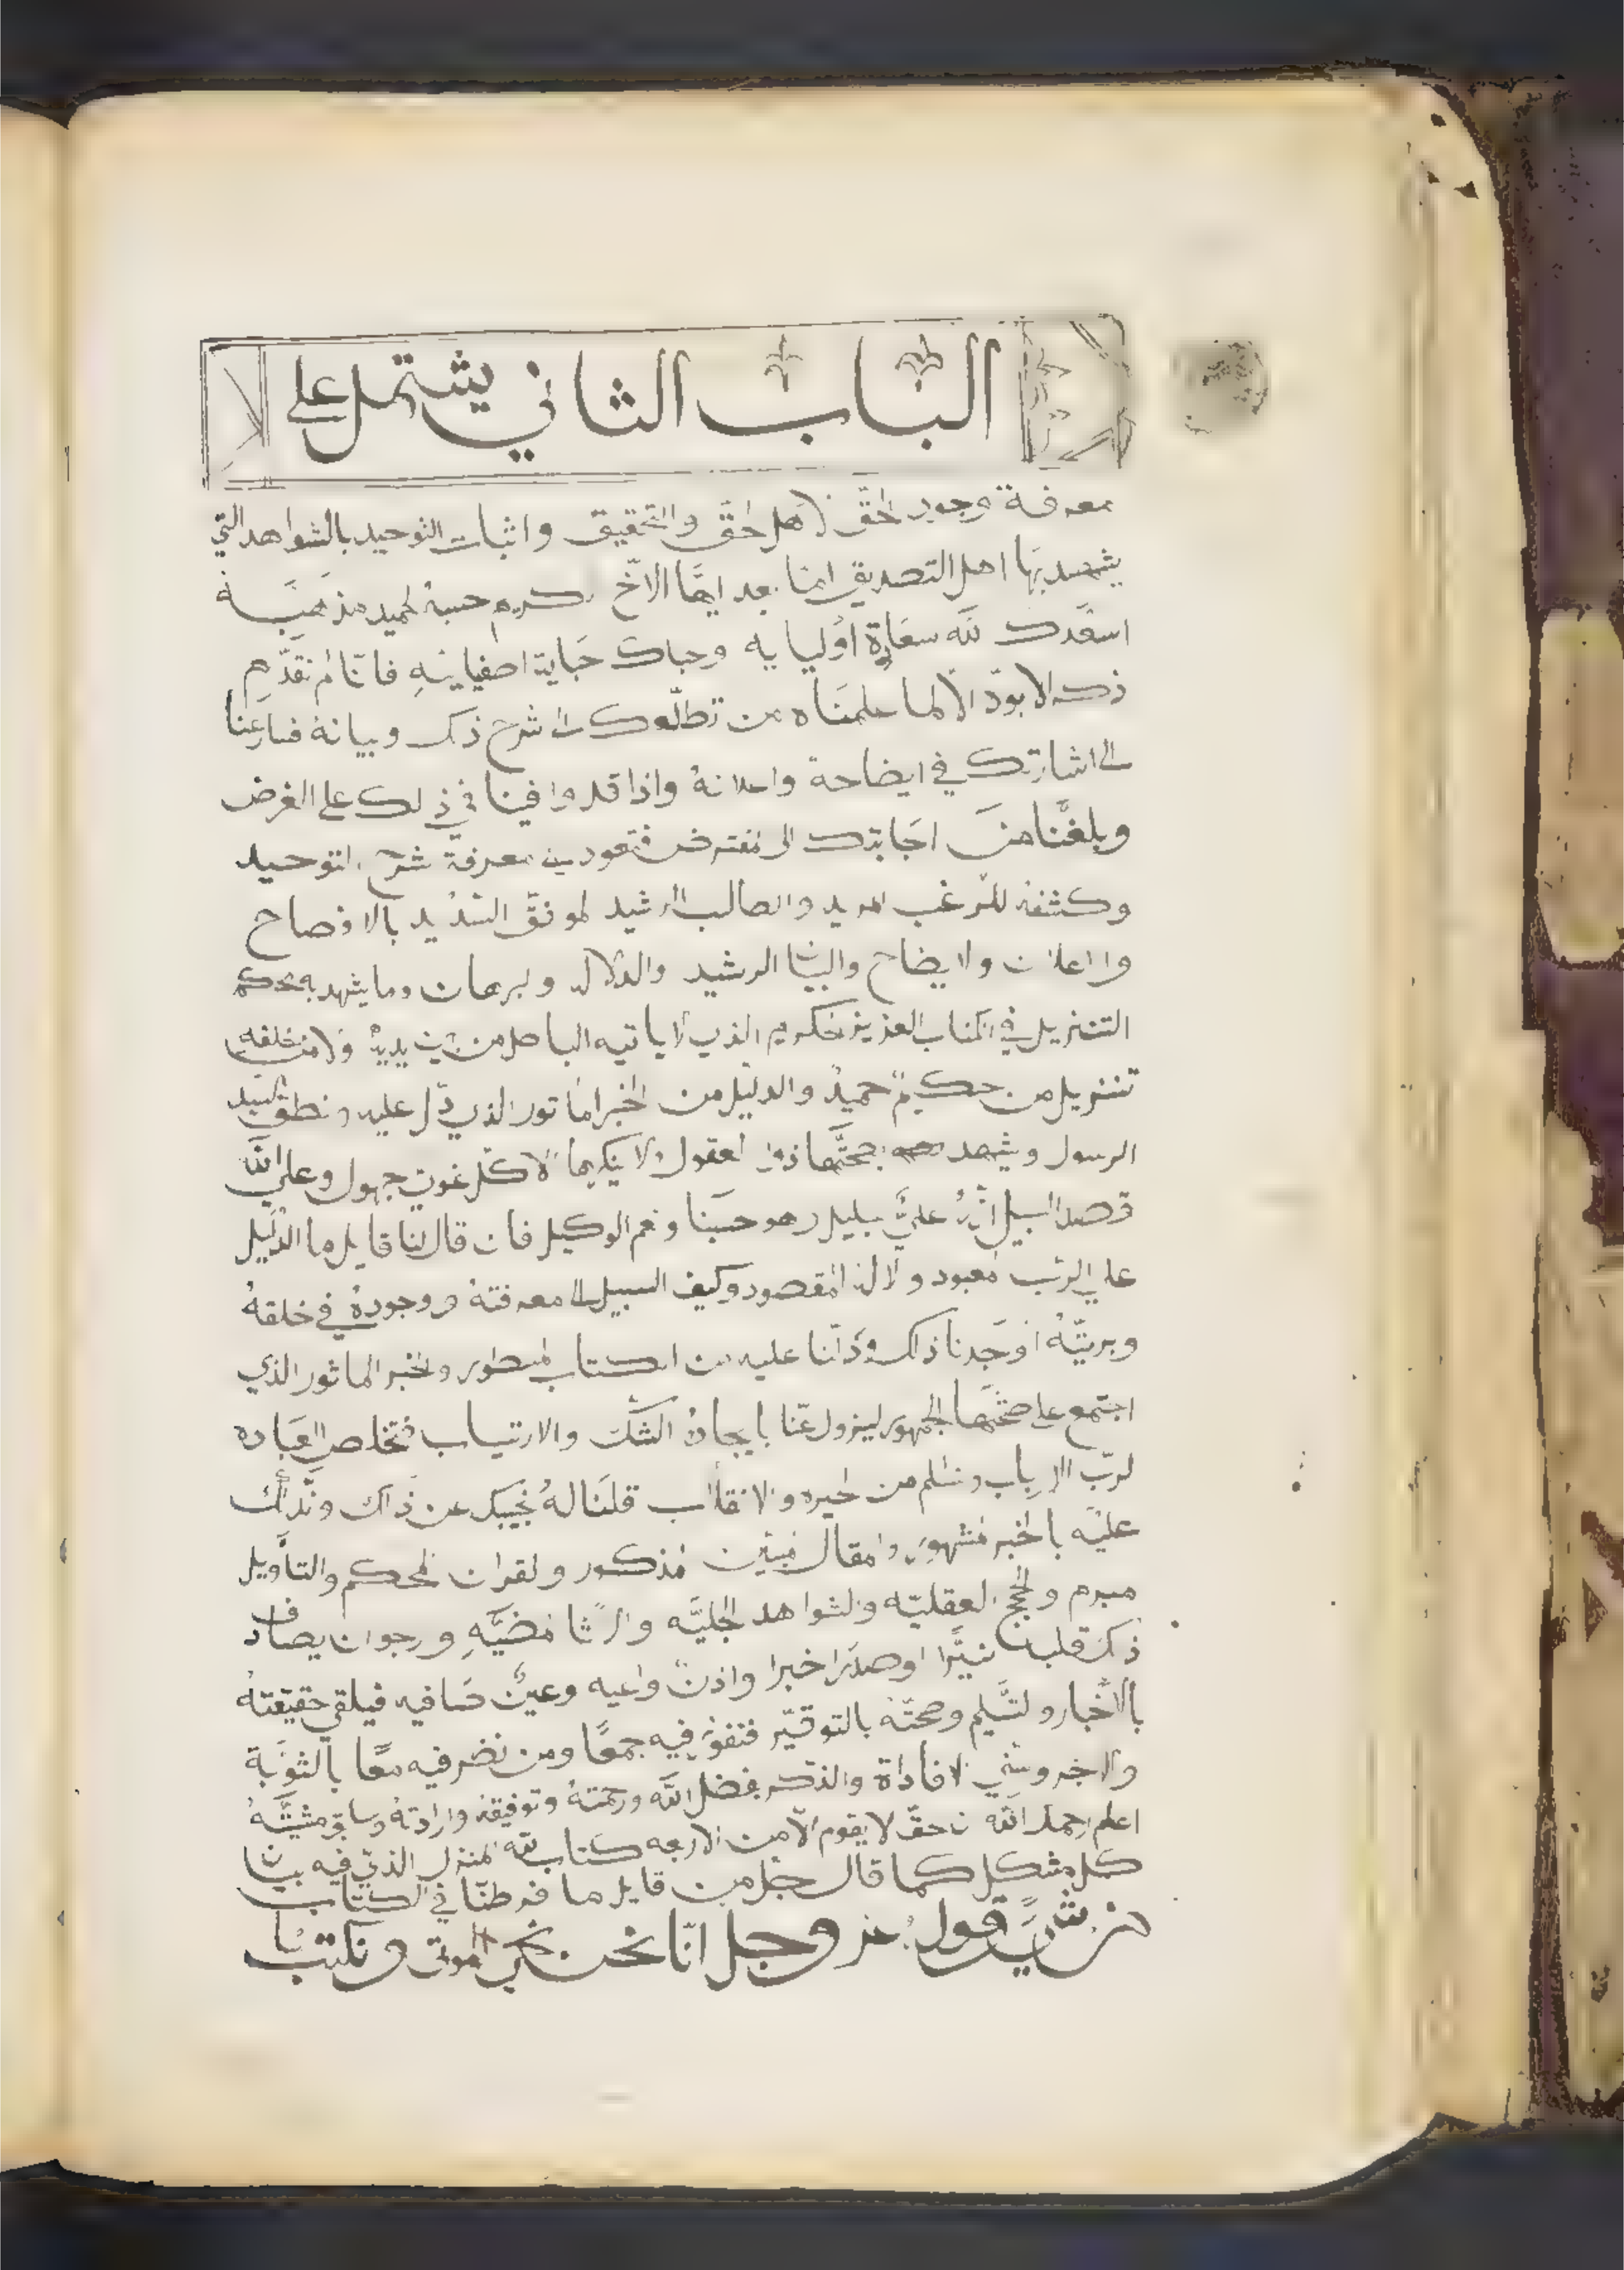 الباب الثاني يشتمل على
معرفة وجود الحق لاهل الحق والتحقيق واثبات التوحيد بالشواهد التي
يشهد بها اهل التصديق اما بعد ايها الاخ كرم حسبه الحميد مذهبه
اسعدك الله سعادة اوليايه وحباك حباية اصفيايه فاننا لم نقدم
ذكر الابوة الا لما علمناه من تطلعك الى شرح ذلك وبيانه فسارعنا
الى اشارتك في ايضاحة واعلانه واذا قد وافينا في ذلك على الغرض
وبلغنا من اجابتك الى المفترض فنعود من معرفة شرح التوحيد
وكشفه للرغب المريد والطالب الرشيد الموفق السديد بالافصاح
والاعلان والايضاح والبيان الرشيد والدلال والبرهان وما يشهد به محكم
التنزيل في الكتاب العزيز الحكيم الذي لا ياتيه الباطل من بين يديه ولا من خلفه
تنزيل من حكيم حميد والدليل من الخبر الماثور الذي دل عليه ونطق السيد
الرسول ويشهد بصحتها ذوي العقول ولا ينكرها الا كل غوي جهول وعلى الله
قصد السبيل انه علي بليل وهو حسبنا ونعم الوكيل فان قال لنا قايل ما الدليل
على الرب المعبود والاله المقصود وكيف السبيل الى معرفته ووجوده في خلقه
وبريته اوجدنا ذلك ودلنا عليه من الكتاب المسطور والخبر الماثور الذي
اجتمع على صحتها الجمهور ليزول عنا بايجاده الشك والارتياب فنخلص العباده
لرب الارباب ونسلم من الحيره والانقلاب قلنا له نجيبك عن ذلك وندلك
عليه بالخبر المشهور والمقال المبين المذكور والقران المحكم والتاويل
المبرم والحجج العقليه والشواهد الجليه والاثار المضيه ونرجو ان يصادف
ذلك قلبا نيرا او صدرا خبرا واذن واعيه وعين صافيه فيلقي حقيقته
بالاخبار والتسليم وصحته بالتوقير فنفوز فيه جمعا ومن نضر فيه معا بالثوبة
والاجر وسني الافادة والذكر بفضل الله ورحمته وتوفيقه وارادته وسابق مشيته
اعلم رحمك الله ان الحق لا يقوم الا من الاربعه كتاب الله المنزل الذي فيه بيان
كل مشكل كما قال جل من قايل ما فرطنا في الكتاب
من شي وقوله عز وجل انا نحن نحيي الموتى ونكتب ما